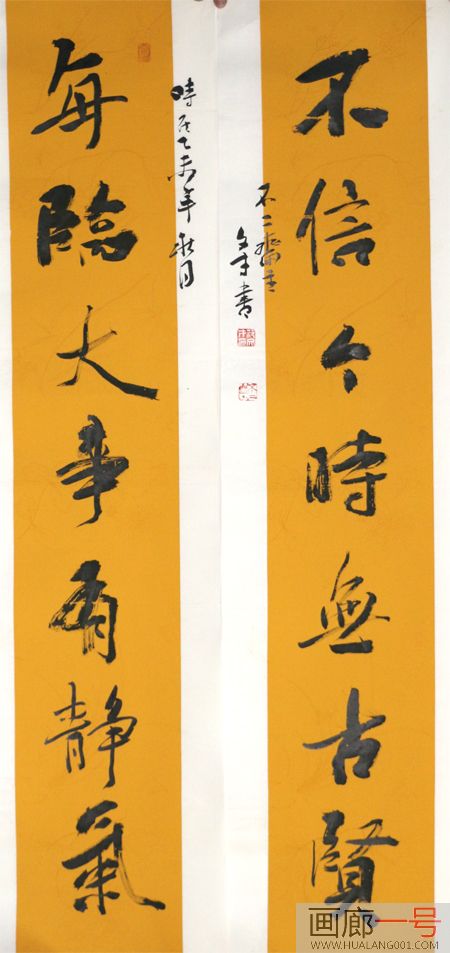 每臨大事有靜氣
時在乙未年秋月
不二齋主
書
不信今時無古賢
画廊一号
WWW.HUALANG001.COM